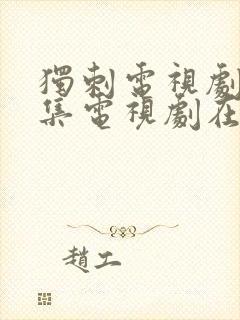 獨刺電視劇
集電視劇在
趙工